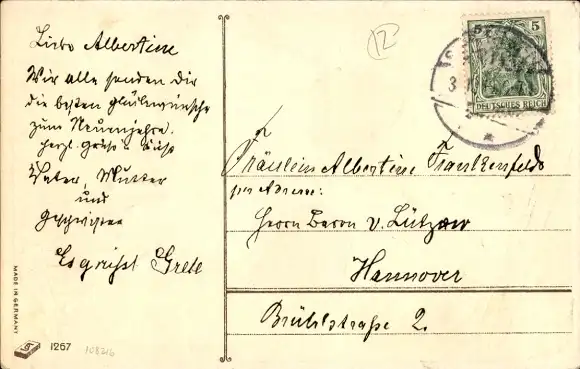 Liebe Albertine
Wir alle senden dir
die besten Glückwünsche
zum Neuenjahre.
herzl. Grüße u. Küße
Vater, Mutter
und
Geschwister
Es grüßt Grete
MADE IN GERMANY
1257
108316
12
5 5
DEUTSCHES REICH
Fräulein Albertine Frankenfeld
per Adresse:
Herrn Baron v. Lützow
Hannover
Brühlstraße 2.